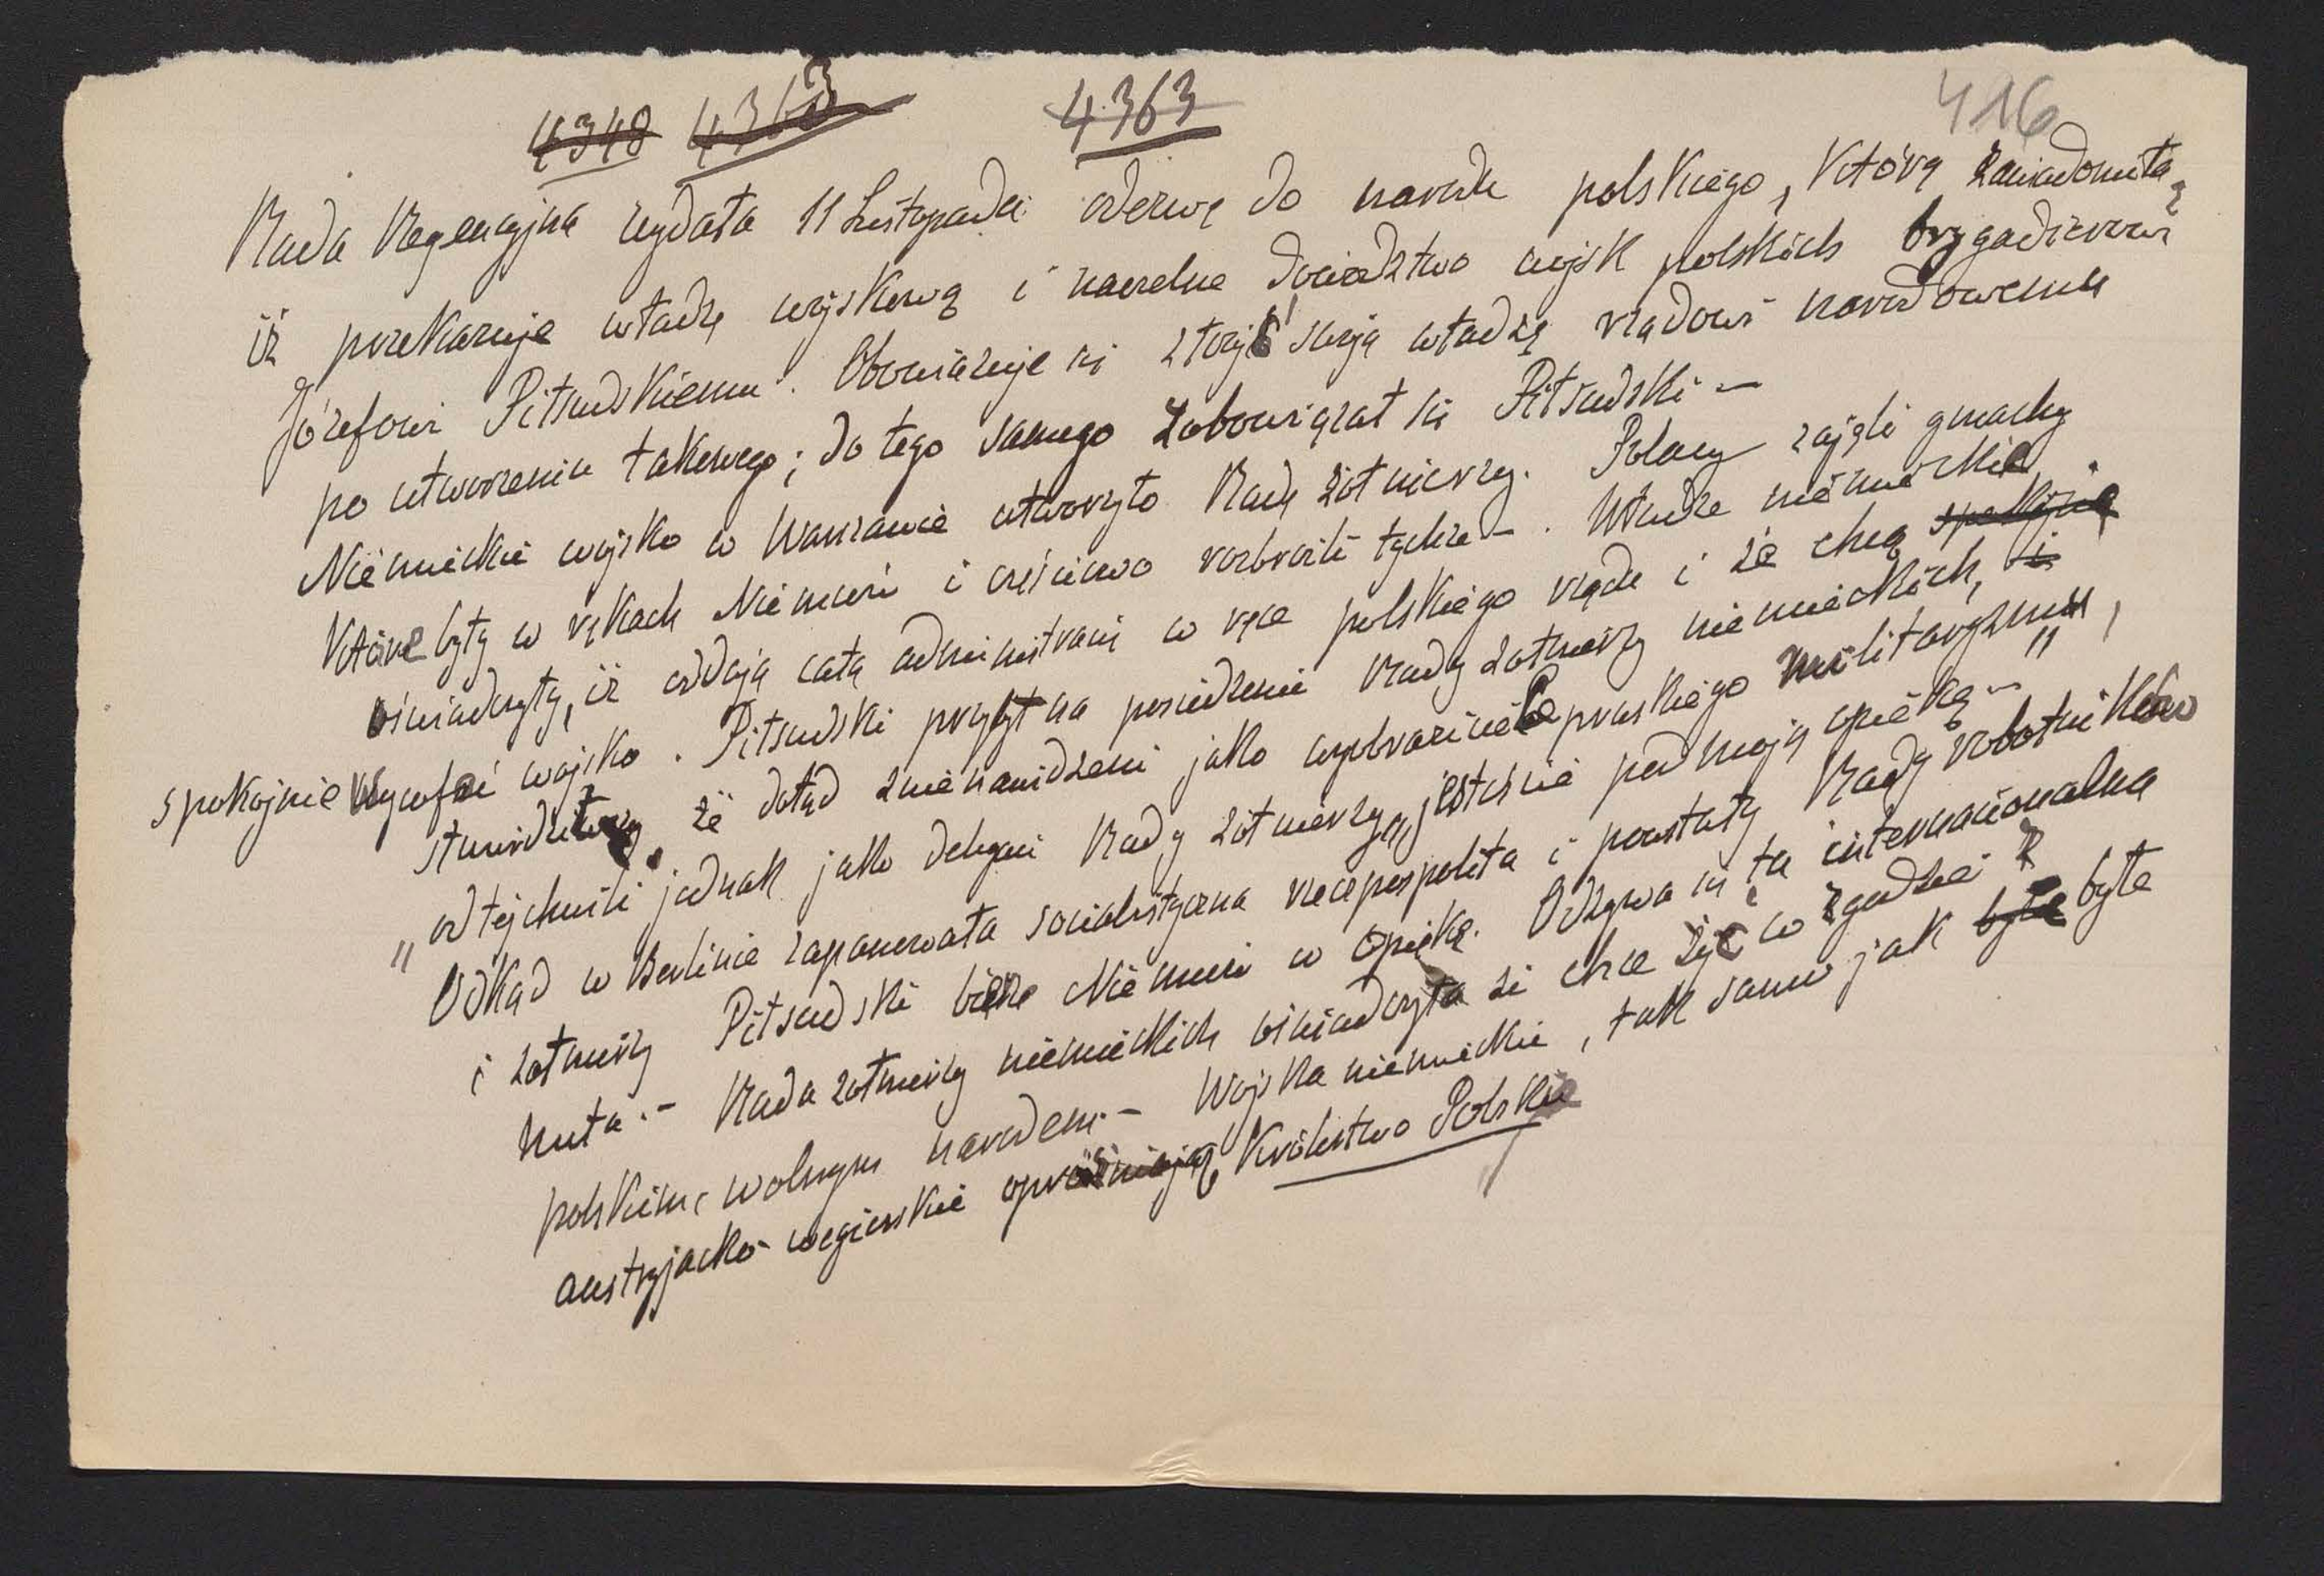 4348 4363 4363 416
Rada Regencyjna wydała 11 Listopada odezwę do narodu polskiego, którą zawiadomiła,
iż przekazuje władzę wojskową i naczelne dowództwo wojsk polskich brygadierowi
Józefowi Piłsudskiemu. Obowiązuje się złożyć swoją władzę rządowi narodowemu
po utworzeniu takowego; do tego samego zobowiązał się Piłsudski –
Niemieckie wojsko w Warszawie utworzyło Radę żołnierzy. Polacy zajęli gmachy
które były w rękach Niemców i częściowo rozbroili tychże –. Władze niemieckie
oświadczyły, iż oddają całą administrację w ręce polskiego rządu i że chcą spokojnie
spokojnie wycofać wojsko. Piłsudski przybył na posiedzenie Rady żołnierzy niemieckich, i
stwierdziwszy że dotąd znienawidzeni jako wyobraziciele pruskiego militaryzmu,
„od tej chwili jednak jako delegaci Rady żołnierzy, jesteście pod moją opieką –"
Odkąd w Berlinie zapanowała socialistyczna rzeczpospolita i powstały Rady robotników
i żołnierzy Piłsudski bierze Niemców w opiekę. Odzywa się ta internacionalna
nuta. – Rada żołnierzy niemieckich oświadczyła że chce żyć w zgodzie z
polskim, wolnym narodem. – Wojska niemieckie, tak samo jak byłe byłe
austryjacko-węgierskie opróżniają Królestwo Polskie